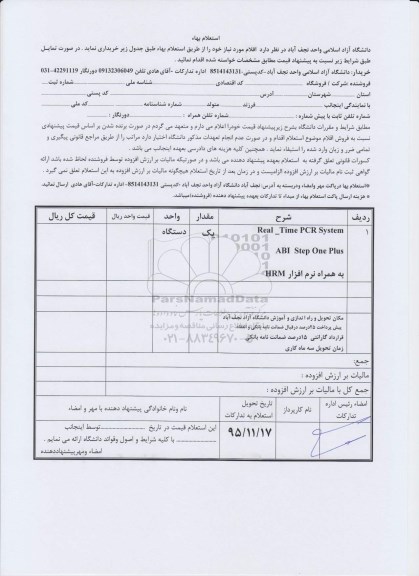 استعلام بهاء
دانشگاه آزاد اسلامی واحد نجف آباد در نظر دارد اقلام مورد نیاز خود را از طریق استعلام بهاء طبق جدول زیر خریداری نماید . در صورت تمایل
طبق شرایط زیر نسبت به پیشنهاد قیمت مطابق مشخصات خواسته شده اقدام نمائید .
خریدار: دانشگاه آزاد اسلامی واحد نجف آباد -کدپستی 8514143131 اداره تدارکات -آقای هادی تلفن 09132306049 دورنگار 42291119-031
فروشنده: شرکت / فروشگاه ........ کد اقتصادی ........ شناسه ملی ........ شماره ثبت ....
استان ........ شهرستان ........ آدرس ........ کد پستی ........
با نمایندگی اینجانب ........ فرزند ........ متولد ........ شماره شناسنامه ........ کد ملی
شماره تلفن ثابت با پیش شماره : ........ شماره تلفن همراه : ........ دورنگار : ........
مطابق شرایط و مقررات دانشگاه بشرح زیر پیشنهاد قیمت خود را اعلام می دارم و متعهد می گردم در صورت برنده شدن بر اساس قیمت پیشنهادی
نسبت به فروش اقلام موضوع استعلام اقدام و در صورت عدم انجام تعهدات مذکور دانشگاه اختیار دارد مراتب را از طریق مراجع قانونی پیگیری و
تمامی ضرر و زیان وارد شده را استیفاء نماید . همچنین کلیه هزینه های دادرسی بعهده اینجانب می باشد .
کسورات قانونی تعلق گرفته به استعلام بعهده پیشنهاد دهنده می باشد و در صورتیکه مالیات بر ارزش افزوده توسط فروشنده لحاظ شده باشد ارائه
گواهی ثبت نام مالیات بر ارزش افزوده الزامیست و در زمان بعد از تاریخ استعلام هیچگونه مالیات بر ارزش افزوده به این استعلام تعلق نمی گیرد .
*استعلام بها درپاکت مهر وامضاء ودربسته به آدرس: نجف آباد دانشگاه آزاد واحد نجف آباد -کدپستی 8514143131 اداره تدارکات-آقای هادی ارسال نمائید.
* هزینه ارسال پاکت استعلام بهاء از مبداء تا تدارکات بعهده پیشنهاد دهنده (فروشنده)میباشد.
ردیف شرح مقدار واحد قیمت واحد ریال قیمت کل ریال
۱ Real _Time PCR System یک دستگاه
ABI Step One Plus
به همراه نرم افزار HRM
ParsNamadData
۰۲۱-۸۸۳۴۹۶۷۰
مکان تحویل و راه اندازی و آموزش دانشگاه آزاد نجف آباد
پیش پرداخت ۲۵درصد درقبال ضمانت نامه بانکی
قرارداد گارانتی ۱۵درصد ضمانت نامه بانکی
زمان تحویل سه ماه کاری
جمع:
مالیات بر ارزش افزوده :
جمع کل با مالیات بر ارزش افزوده :
امضاء رئیس اداره تدارکات
نام کارپرداز
تاریخ تحویل استعلام به تدارکات
نام ونام خانوادگی پیشنهاد دهنده با مهر و امضاء
۹۵/۱۱/۱۷
این استعلام قیمت در تاریخ ........ توسط اینجانب
........ با کلیه شرایط و اصول وفوائد دانشگاه ارائه می نمایم .
امضاء ومهرپیشنهاددهنده